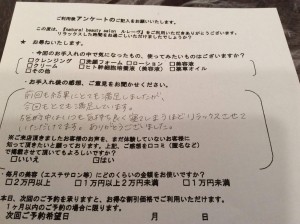 ご利用後アンケートのご記入をお願いいたします。
この度は、「Natural beauty salon ルレーヴ」をご利用いただきありがとうございます。
リラックスした時間をお過ごしいただけましたでしょうか？
★お尋ねいたします。
・今回のお手入れの中で気になったもの、使ってみたいものはございますか？
□クレンジング □洗顔フォーム □ローション □美容液
□クリーム □ヒト幹細胞培養液（美容液） □薬草オイル
□その他
・お手入れ後の感想、ご意見をお聞かせください。
前回も結果にとても満足しましたが、
今回もとても満足しています。
施術中はいつも気持ち良く寝てしまうほどリラックスさせて
いただいてます。ありがとうございました。
※ご来店頂きましたお客様のお声を、まだ体験していないお客様に
知って頂きたいと願っております。上記、ご感想を口コミ（匿名など）
で掲載させて頂いてもよろしいですか？
□いいえ □はい
・毎月の美容（エステサロン等）にどのくらいの金額をお使いですか？
□２万円以上 □１万円以上２万円未満 □１万円未満
本日、次回のご予約を承りますと、お得な割引価格でご利用いただけます。
１ヶ月以内のご予約の場合に限ります。
次回ご予約希望日 月 日